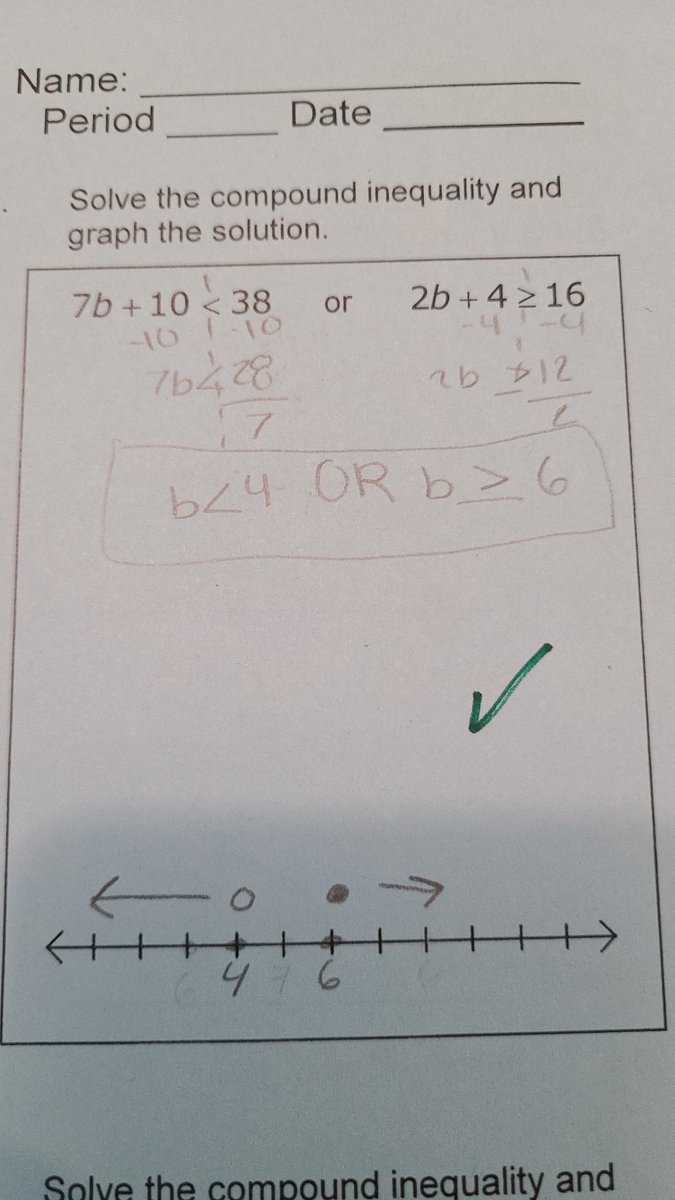 Name:
Period Date
Solve the compound inequality and
graph the solution.
7b + 10 < 38 or 2b + 4 ≥ 16
-10 -10 -4 -4
7b < 28 2b ≥ 12
7
b < 4 OR b ≥ 6
4 6
Solve the compound inequality and